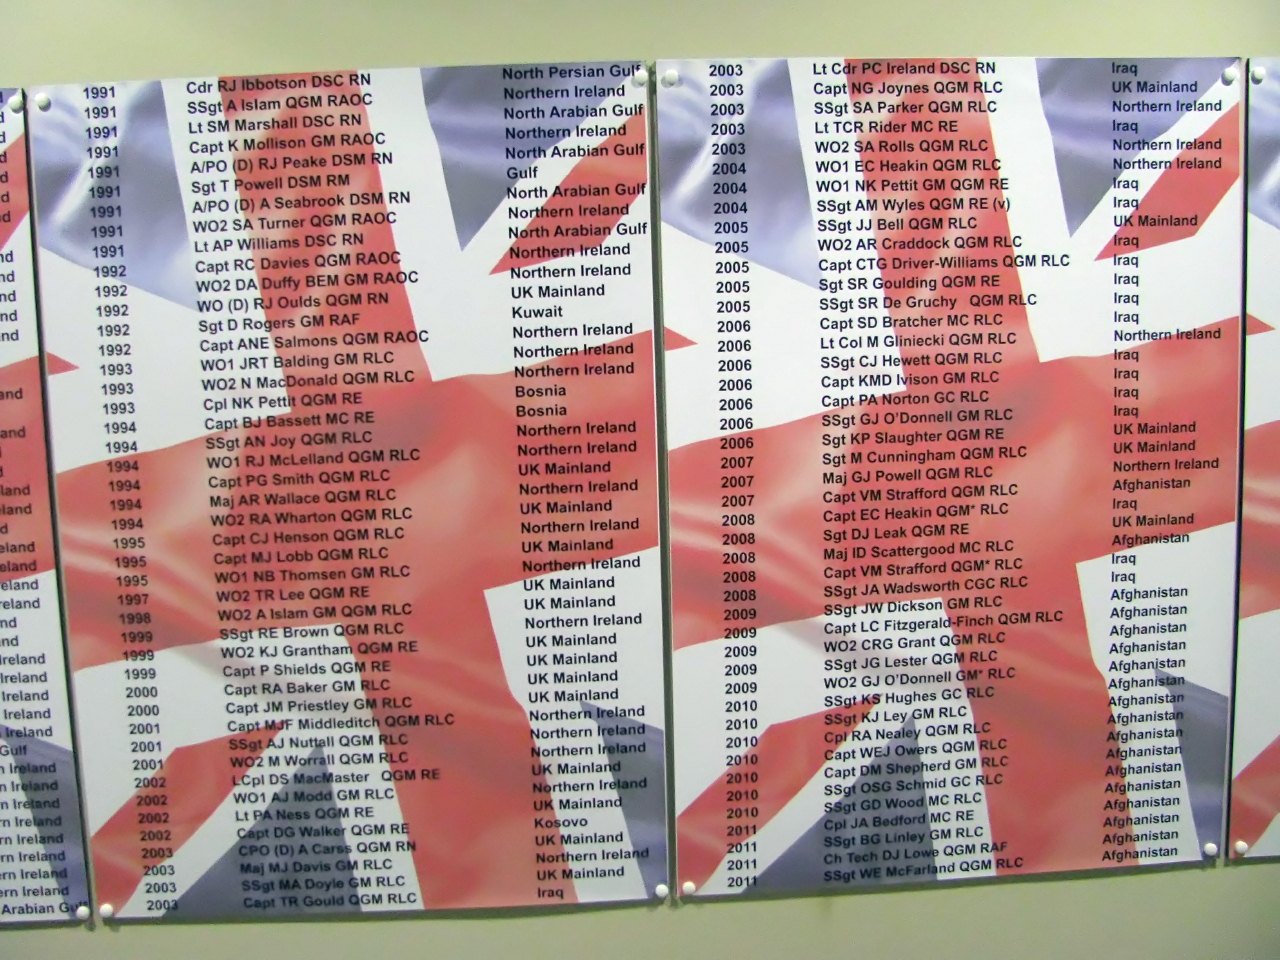 1991 Cdr RJ Ibbotson DSC RN North Persian Gulf
1991 SSgt A Islam QGM RAOC Northern Ireland
1991 Lt SM Marshall DSC RN North Arabian Gulf
1991 Capt K Mollison GM RAOC Northern Ireland
1991 A/PO (D) RJ Peake DSM RN North Arabian Gulf
1991 Sgt T Powell DSM RM Gulf
1991 A/PO (D) A Seabrook DSM RN North Arabian Gulf
1991 WO2 SA Turner QGM RAOC Northern Ireland
1991 Lt AP Williams DSC RN North Arabian Gulf
1992 Capt RC Davies QGM RAOC Northern Ireland
1992 WO2 DA Duffy BEM GM RAOC Northern Ireland
1992 WO (D) RJ Oulds QGM RN UK Mainland
1992 Sgt D Rogers GM RAF Kuwait
1992 Capt ANE Salmons QGM RAOC Northern Ireland
1993 WO1 JRT Balding GM RLC Northern Ireland
1993 WO2 N MacDonald QGM RLC Northern Ireland
1993 Cpl NK Pettit QGM RE Bosnia
1994 Capt BJ Bassett MC RE Bosnia
1994 SSgt AN Joy QGM RLC Northern Ireland
1994 WO1 RJ McLelland QGM RLC Northern Ireland
1994 Capt PG Smith QGM RLC UK Mainland
1994 Maj AR Wallace QGM RLC Northern Ireland
1994 WO2 RA Wharton QGM RLC UK Mainland
1995 Capt CJ Henson QGM RLC Northern Ireland
1995 Capt MJ Lobb QGM RLC UK Mainland
1995 WO1 NB Thomsen GM RLC Northern Ireland
1997 WO2 TR Lee QGM RE UK Mainland
1998 WO2 A Islam GM QGM RLC UK Mainland
1999 SSgt RE Brown QGM RLC Northern Ireland
1999 WO2 KJ Grantham QGM RE UK Mainland
1999 Capt P Shields QGM RE UK Mainland
2000 Capt RA Baker GM RLC UK Mainland
2000 Capt JM Priestley GM RLC UK Mainland
2001 Capt MJF Middleditch QGM RLC Northern Ireland
2001 SSgt AJ Nuttall QGM RLC Northern Ireland
2001 WO2 M Worrall QGM RLC Northern Ireland
2002 LCpl DS MacMaster QGM RE UK Mainland
2002 WO1 AJ Modd GM RLC Northern Ireland
2002 Lt PA Ness QGM RE UK Mainland
2002 Capt DG Walker QGM RE Kosovo
2003 CPO (D) A Carss QGM RN UK Mainland
2003 Maj MJ Davis GM RLC Northern Ireland
2003 SSgt MA Doyle GM RLC UK Mainland
2003 Capt TR Gould QGM RLC Iraq
2003 Lt Cdr PC Ireland DSC RN Iraq
2003 Capt NG Joynes QGM RLC UK Mainland
2003 SSgt SA Parker QGM RLC Northern Ireland
2003 Lt TCR Rider MC RE Iraq
2003 WO2 SA Rolls QGM RLC Northern Ireland
2004 WO1 EC Heakin QGM RLC Northern Ireland
2004 WO1 NK Pettit GM QGM RE Iraq
2004 SSgt AM Wyles QGM RE (v) Iraq
2005 SSgt JJ Bell QGM RLC UK Mainland
2005 WO2 AR Craddock QGM RLC Iraq
2005 Capt CTG Driver-Williams QGM RLC Iraq
2005 Sgt SR Goulding QGM RE Iraq
2005 SSgt SR De Gruchy QGM RLC Iraq
2006 Capt SD Bratcher MC RLC Iraq
2006 Lt Col M Gliniecki QGM RLC Northern Ireland
2006 SSgt CJ Hewett QGM RLC Iraq
2006 Capt KMD Ivison GM RLC Iraq
2006 Capt PA Norton GC RLC Iraq
2006 SSgt GJ O'Donnell GM RLC Iraq
2006 Sgt KP Slaughter QGM RE UK Mainland
2007 Sgt M Cunningham QGM RLC UK Mainland
2007 Maj GJ Powell QGM RLC Northern Ireland
2007 Capt VM Strafford QGM RLC Afghanistan
2008 Capt EC Heakin QGM* RLC Iraq
2008 Sgt DJ Leak QGM RE UK Mainland
2008 Maj ID Scattergood MC RLC Afghanistan
2008 Capt VM Strafford QGM* RLC Iraq
2008 SSgt JA Wadsworth CGC RLC Iraq
2009 SSgt JW Dickson GM RLC Afghanistan
2009 Capt LC Fitzgerald-Finch QGM RLC Afghanistan
2009 WO2 CRG Grant QGM RLC Afghanistan
2009 SSgt JG Lester QGM RLC Afghanistan
2009 WO2 GJ O'Donnell GM* RLC Afghanistan
2010 SSgt KS Hughes GC RLC Afghanistan
2010 SSgt KJ Ley GM RLC Afghanistan
2010 Cpl RA Nealey GM RLC Afghanistan
2010 Capt WEJ Owers QGM RLC Afghanistan
2010 Capt DM Shepherd GM RLC Afghanistan
2010 SSgt OSG Schmid GC RLC Afghanistan
2010 SSgt GD Wood MC RLC Afghanistan
2011 Cpl JA Bedford MC RE Afghanistan
2011 SSgt BG Linley GM RLC Afghanistan
2011 Ch Tech DJ Lowe QGM RAF Afghanistan
2011 SSgt WE McFarland QGM RLC Afghanistan